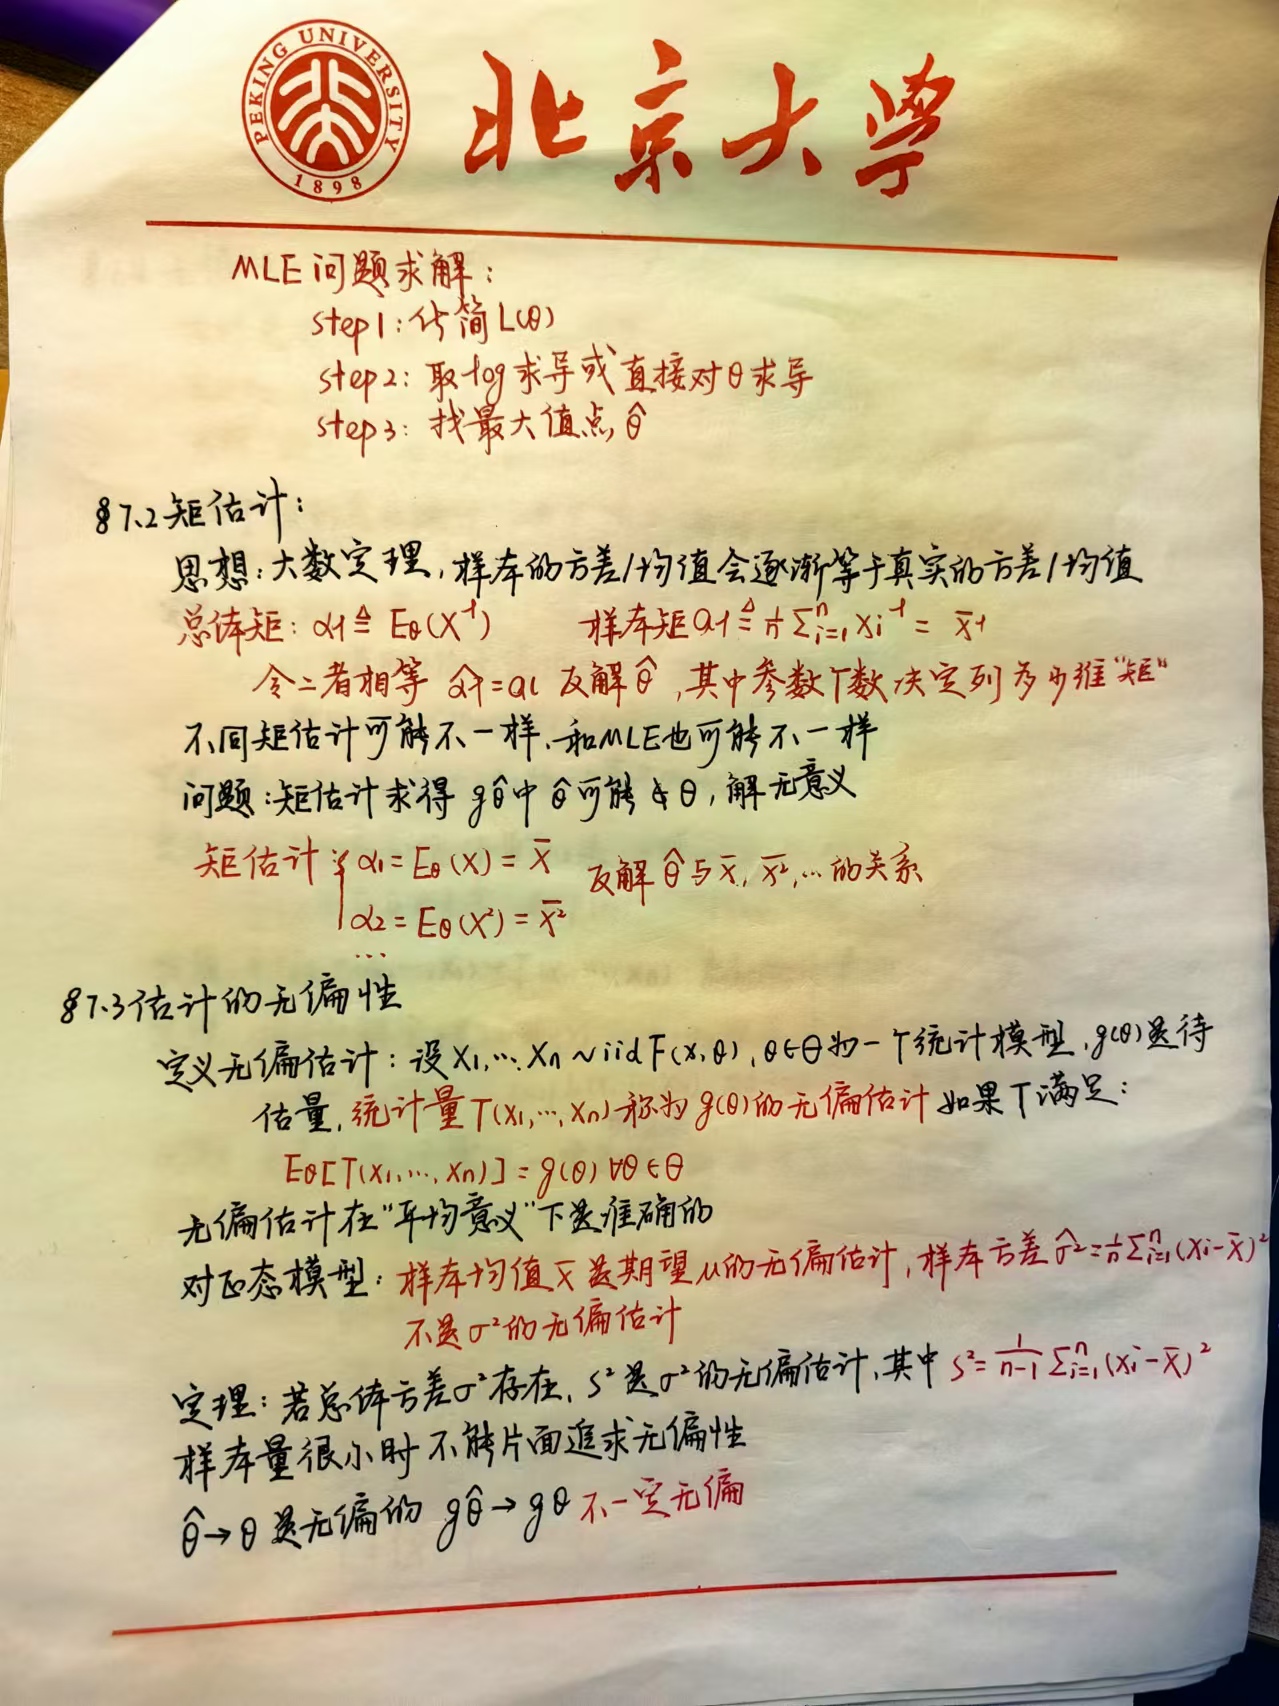 PEKING UNIVERSITY
1898
北京大学
MLE问题求解：
step1：化简L(θ)
step2：取log求导或直接对θ求导
step3：找最大值点θ̂
§7.2矩估计：
思想：大数定理，样本的方差/均值会逐渐等于真实的方差/均值
总体矩：αl ≜ Eθ(X^l)　样本矩al ≜ 1/n Σⁿᵢ₌₁ Xi^l = X̄^l
令二者相等 α̂l=al 反解θ̂，其中参数个数决定列多少维“矩”
不同矩估计可能不一样、和MLE也可能不一样
问题：矩估计求得 gθ̂中 θ̂可能∉Θ，解无意义
矩估计：{ α1=Eθ(X)=X̄　反解θ̂与X̄，X̄²，…的关系
α2=Eθ(X²)=X̄²
…
§7.3估计的无偏性
定义无偏估计：设X1,…,Xn ~iid F(x,θ)，θ∈Θ为一个统计模型，g(θ)是待
估量，统计量T(X1,…,Xn)称为g(θ)的无偏估计如果T满足：
Eθ[T(X1,…,Xn)]=g(θ) ∀θ∈Θ
无偏估计在“平均意义”下是准确的
对正态模型：样本均值X̄是期望μ的无偏估计，样本方差σ̂²=1/n Σⁿᵢ₌₁(Xi-X̄)²
不是σ²的无偏估计
定理：若总体方差σ²存在，S²是σ²的无偏估计，其中 S²=1/(n-1) Σⁿᵢ₌₁(Xi-X̄)²
样本量很小时不能片面追求无偏性
θ̂→θ是无偏的 gθ̂→gθ不一定无偏